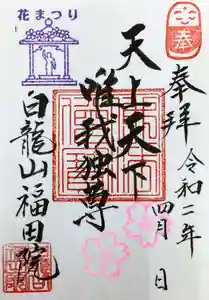 花まつり
奉
奉拝
令和二年
四月 日
天上天下
唯我独尊
白龍山福田院